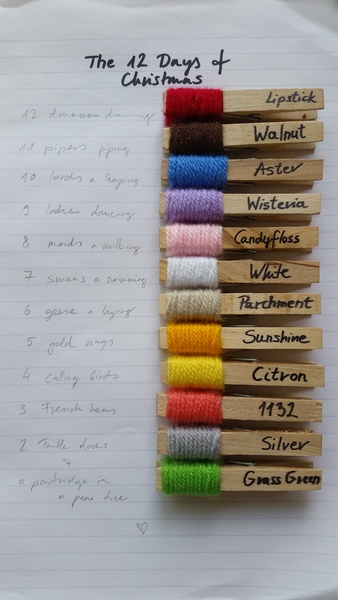 The 12 Days of
Christmas
12 drummers drumming Lipstick
11 pipers piping Walnut
10 lords a leaping Aster
9 ladies dancing Wisteria
8 maids a milking Candyfloss
7 swans a swimming White
6 geese a laying Parchment
5 gold rings Sunshine
4 calling birds Citron
3 French hens 1132
2 Turtle doves Silver
&
a partridge in Grass Green
a pear tree